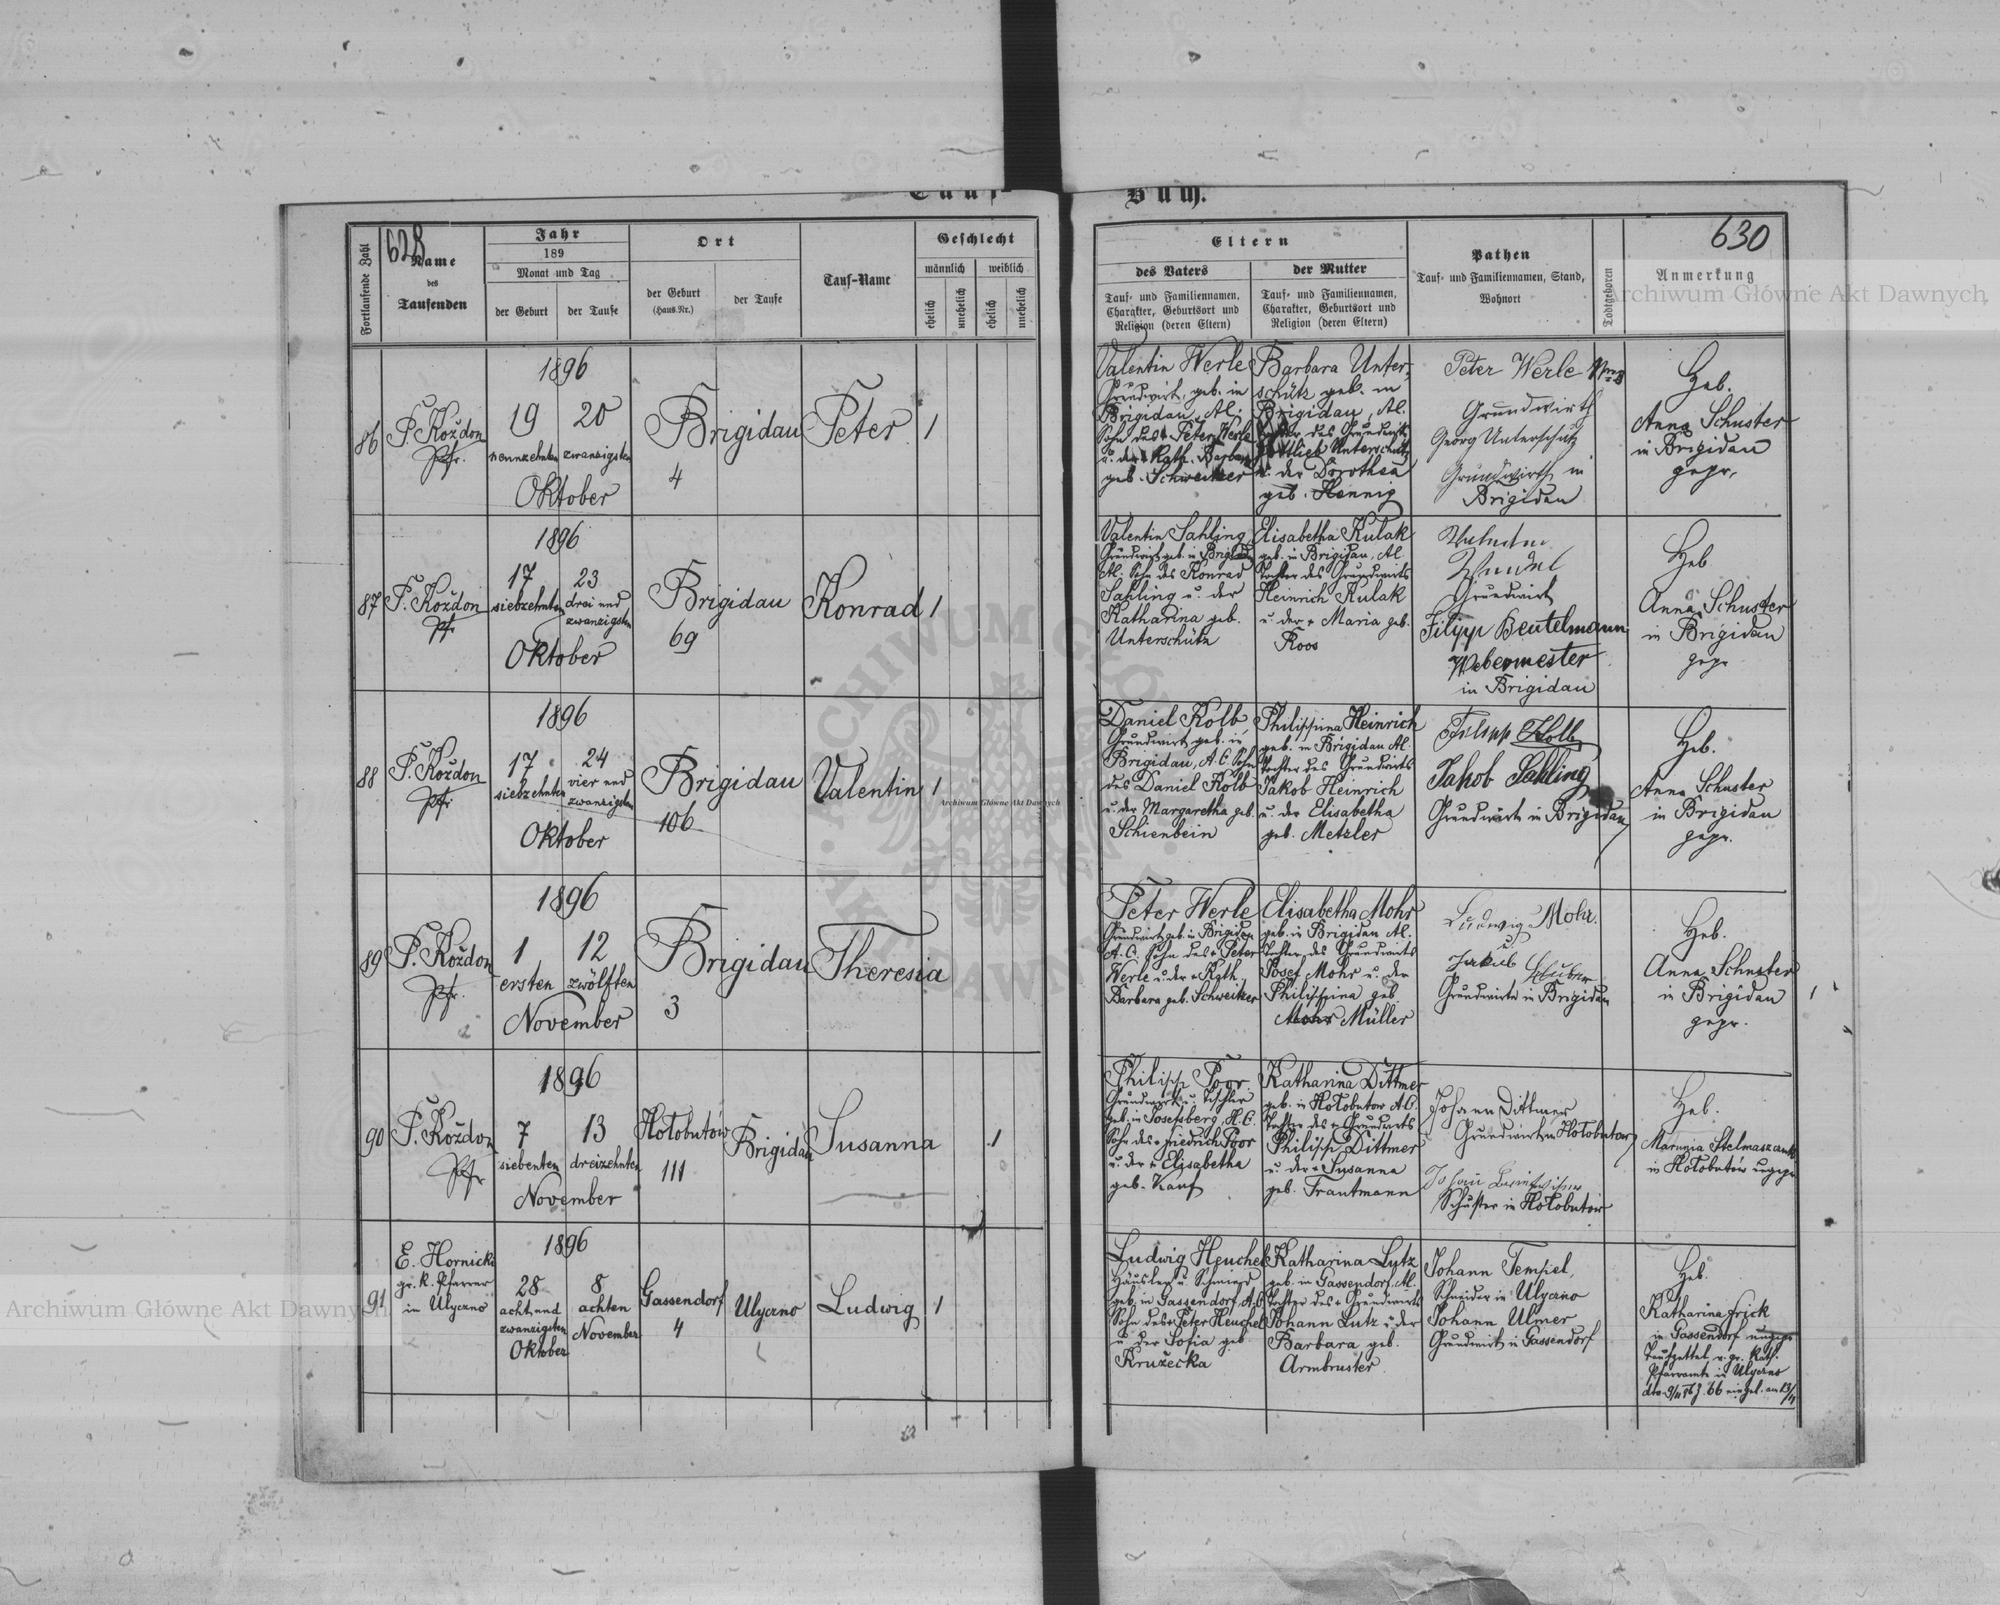 Tauf-
Buch.
628
Fortlaufende Zahl
Name
des
Taufenden
Jahr
189
Monat und Tag
der Geburt
der Taufe
Ort
der Geburt
(Haus-Nr.)
der Taufe
Tauf-Name
Geschlecht
männlich
weiblich
ehelich
unehelich
ehelich
unehelich
86
P. Koždon
Pfr.
1896
19 20
neunzehnten zwanzigsten
Oktober
Brigidau
4
Peter
1
87
P. Koždon
Pfr
1896
17 23
siebzehnten drei und
zwanzigsten
Oktober
Brigidau
69
Konrad
1
88
P. Koždon
Pfr.
1896
17 24
siebzehnten vier und
zwanzigsten
Oktober
Brigidau
106
Valentin
1
89
P. Koždon
Pfr.
1896
1 12
ersten zwölften
November
Brigidau
3
Theresia
90
P. Koždon
Pfr
1896
7 13
siebenten dreizehnten
November
Hołobutów
111
Brigidau
Susanna
1
91
E. Hornicki
gr. k. Pfarrer
in Ulyczno
1896
28 8
acht und achten
zwanzigsten November
Oktober
Gassendorf
4
Ulyczno
Ludwig
1
Eltern
des Vaters
Tauf- und Familiennamen,
Charakter, Geburtsort und
Religion (deren Eltern)
der Mutter
Tauf- und Familiennamen,
Charakter, Geburtsort und
Religion (deren Eltern)
Pathen
Tauf- und Familiennamen, Stand,
Wohnort
Todtgeboren
630
Anmerkung
Valentin Werle
Grundwirt, geb. in
Brigidau, Al.
Sohn des Peter Werle
u. der Kath. Barbara
geb. Schweitzer
Barbara Unter-
schütz geb. in
Brigidau, Al.
Tochter des Grundwirts
Gottlieb Unterschütz
u. der Dorothea
geb. Hennig
Peter Werle
Grundwirth
Georg Unterschütz
Grundwirth in
Brigidau
Heb.
Anna Schuster
in Brigidau
gepr.
Valentin Sahling
Grundwirt geb. in Brigidau
Al. Sohn des Konrad
Sahling u. der
Katharina geb.
Unterschütz
Elisabetha Kulak
geb. in Brigidau, Al.
Tochter des Grundwirts
Heinrich Kulak
u. der + Maria geb.
Roos
Grundwirt
Filipp Beutelmann
Webermester
in Brigidau
Heb
Anna Schuster
in Brigidau
gepr
Daniel Kolb
Grundwirt geb. in
Brigidau, A.C. Sohn
des Daniel Kolb
u. der Margaretha geb.
Schienbein
Philippina Heinrich
geb. in Brigidau Al.
Tochter des Grundwirts
Jakob Heinrich
u. der Elisabetha
geb. Metzler
Filipp Kolb
Jakob Sahling
Grundwirte in Brigidau
Heb.
Anna Schuster
in Brigidau
gepr.
Peter Werle
Grundwirt geb. in Brigidau
A.C. Sohn des + Peter
Werle u. der + Kath.
Barbara geb. Schweitzer
Elisabetha Mohr
geb. in Brigidau Al.
Tochter des Grundwirts
Josef Mohr u. der
Philippina geb
Mohr Müller
Ludwig Mohr.
u.
Jakob
Grundwirte in Brigidau
Heb.
Anna Schuster
in Brigidau
gepr.
Philipp Poor
Grundwirt u. Tischler
geb. in Josefsberg, H.C.
Sohn des + Friedrich Poor
u. der + Elisabetha
geb. Kauf
Katharina Dittmer
geb. in Hołobutow A.C.
Tochter des + Grundwirts
Philipp Dittmer
u. der + Susanna
geb. Trautmann
Johann Dittmer
Grundwirt in Hołobutow
Johann
Schuster in Hołobutow
Heb.
Marunia
in Hołobutów ungepr
Ludwig Heuchel
Häusler u. Schmied
geb. in Gassendorf A.C.
Sohn des + Peter Heuchel
u. der Sofia geb.
Kružecka
Katharina Lutz
geb. in Gassendorf, Al.
Tochter des + Grundwirts
Johann Lutz u. der
Barbara geb.
Armbruster
Johann Tempel,
Schneider in Ulyczno
Johann Ulmer
Grundwirt in Gassendorf
Heb.
Katharina Frick
in Gassendorf ungepr
Taufzettel v. gr. Kath.
Pfarramte in Ulyczno
Archiwum Główne Akt Dawnych
Archiwum Główne Akt Dawnych
Archiwum Główne Akt Dawnych
ARCHIWUM GŁÓWNE AKT DAWNYCH